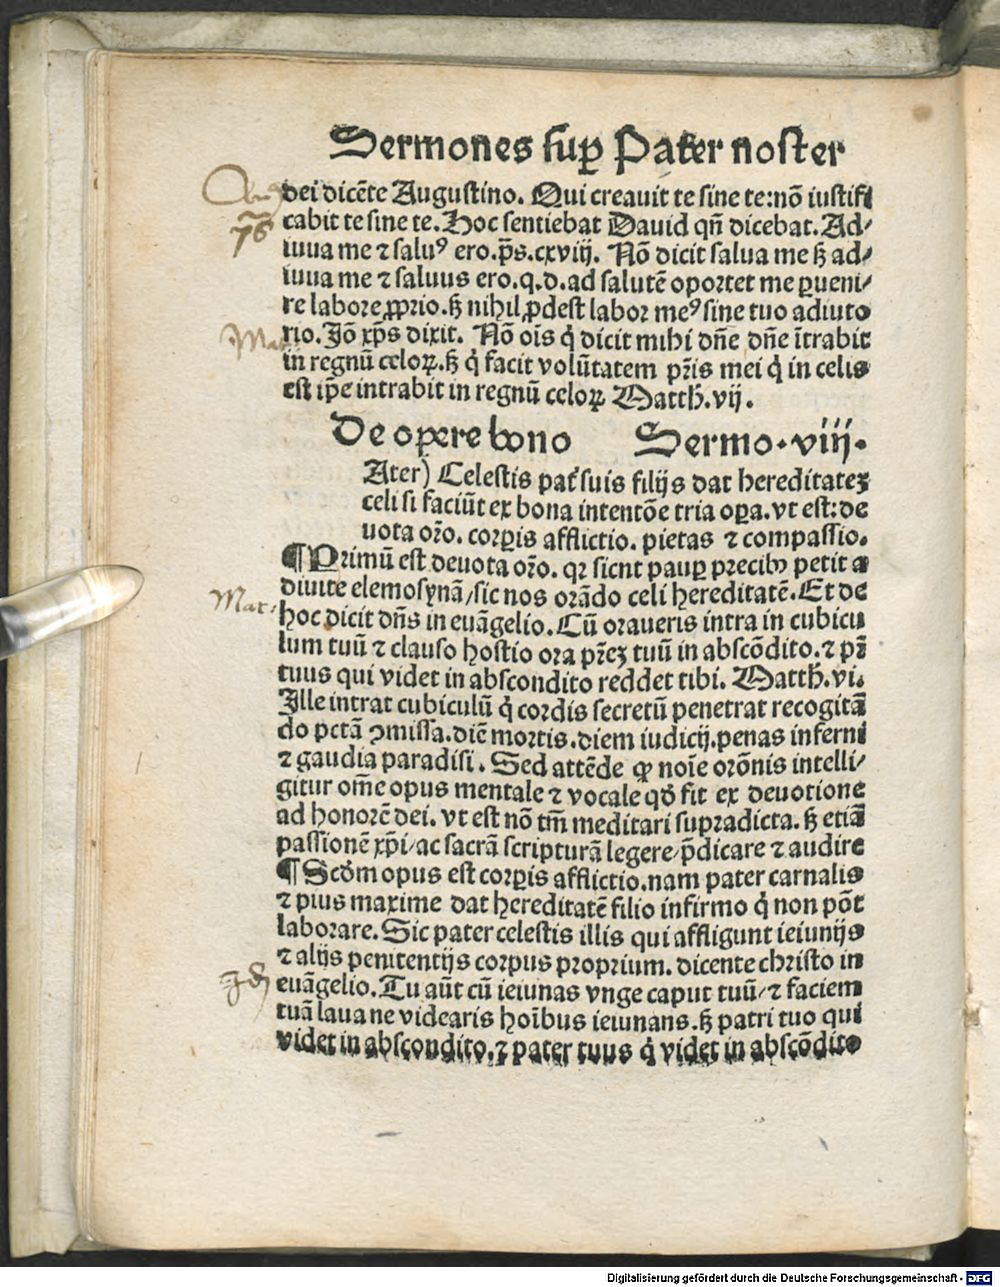 Sermones suꝑ Pater noster
dei dicēte Augustino. Qui creauit te sine te:nō iustifi
cabit te sine te. Hoc sentiebat Dauid qñ dicebat. Ad/
iuua me ⁊ saluꝰ ero.p̄s.cxviij. Nō dicit salua me sꝫ ad/
iuua me ⁊ saluus ero.q.d.ad salutē oportet me ꝑueni/
re labore ꝓprio.sꝫ nihil ꝓdest labor meꝰ sine tuo adiuto
rio. Jō xp̄s dixit. Nō oīs q̇ dicit mihi dn̄e dn̄e ītrabit
in regnū celoꝝ.sꝫ q̇ facit volūtatem pr̄is mei q̇ in celis
est ip̄e intrabit in regnū celoꝝ Matth̄.vij.
De opere bono Sermo.viij.
Ater) Celestis pat̄ suis filijs dat hereditateꝫ
celi si faciūt ex bona intentōe tria oꝑa.vt est:de
uota or̄o. corꝑis afflictio. pietas ⁊ compassio.
¶Primū est deuota or̄o. qꝛ sicnt pauꝑ precibꝰ petit a
diuite elemosynā/sic nos orādo celi hereditatē. Et de
hoc dicit dn̄s in euāgelio. Cū oraueris intra in cubicu
lum tuū ⁊ clauso hostio ora pr̄eꝫ tuū in abscōdito.⁊ pr̄
tuus qui videt in abscondito reddet tibi. Matth̄.vi.
Ille intrat cubiculū q̇ cordis secretū penetrat recogitā
do pctā ꝯmissa.diē mortis.diem iudicij.penas inferni
⁊ gaudia paradisi. Sed attēde ꝙ noīe orōnis intelli/
gitur om̄e opus mentale ⁊ vocale qd̄ fit ex deuotione
ad honorē dei. vt est nō tm̄ meditari supradicta.sꝫ etiā
passionē xp̄i/ac sacrā scripturā legere/p̄dicare ⁊ audire
¶Scd̄m opus est corꝑis afflictio.nam pater carnalis
⁊ pius maxime dat hereditatē filio infirmo q̇ non pōt
laborare. Sic pater celestis illis qui affligunt ieiunijs
⁊ alijs penitentijs corpus proprium. dicente christo in
euāgelio. Tu aūt cū ieiunas vnge caput tuū/⁊ faciem
tuā laua ne videaris hoībus ieiunans.sꝫ patri tuo qui
videt in abscondito.⁊ pater tuus q̇ videt in abscōdito
76
Mat:
Digitalisierung gefördert durch die Deutsche Forschungsgemeinschaft - DFG